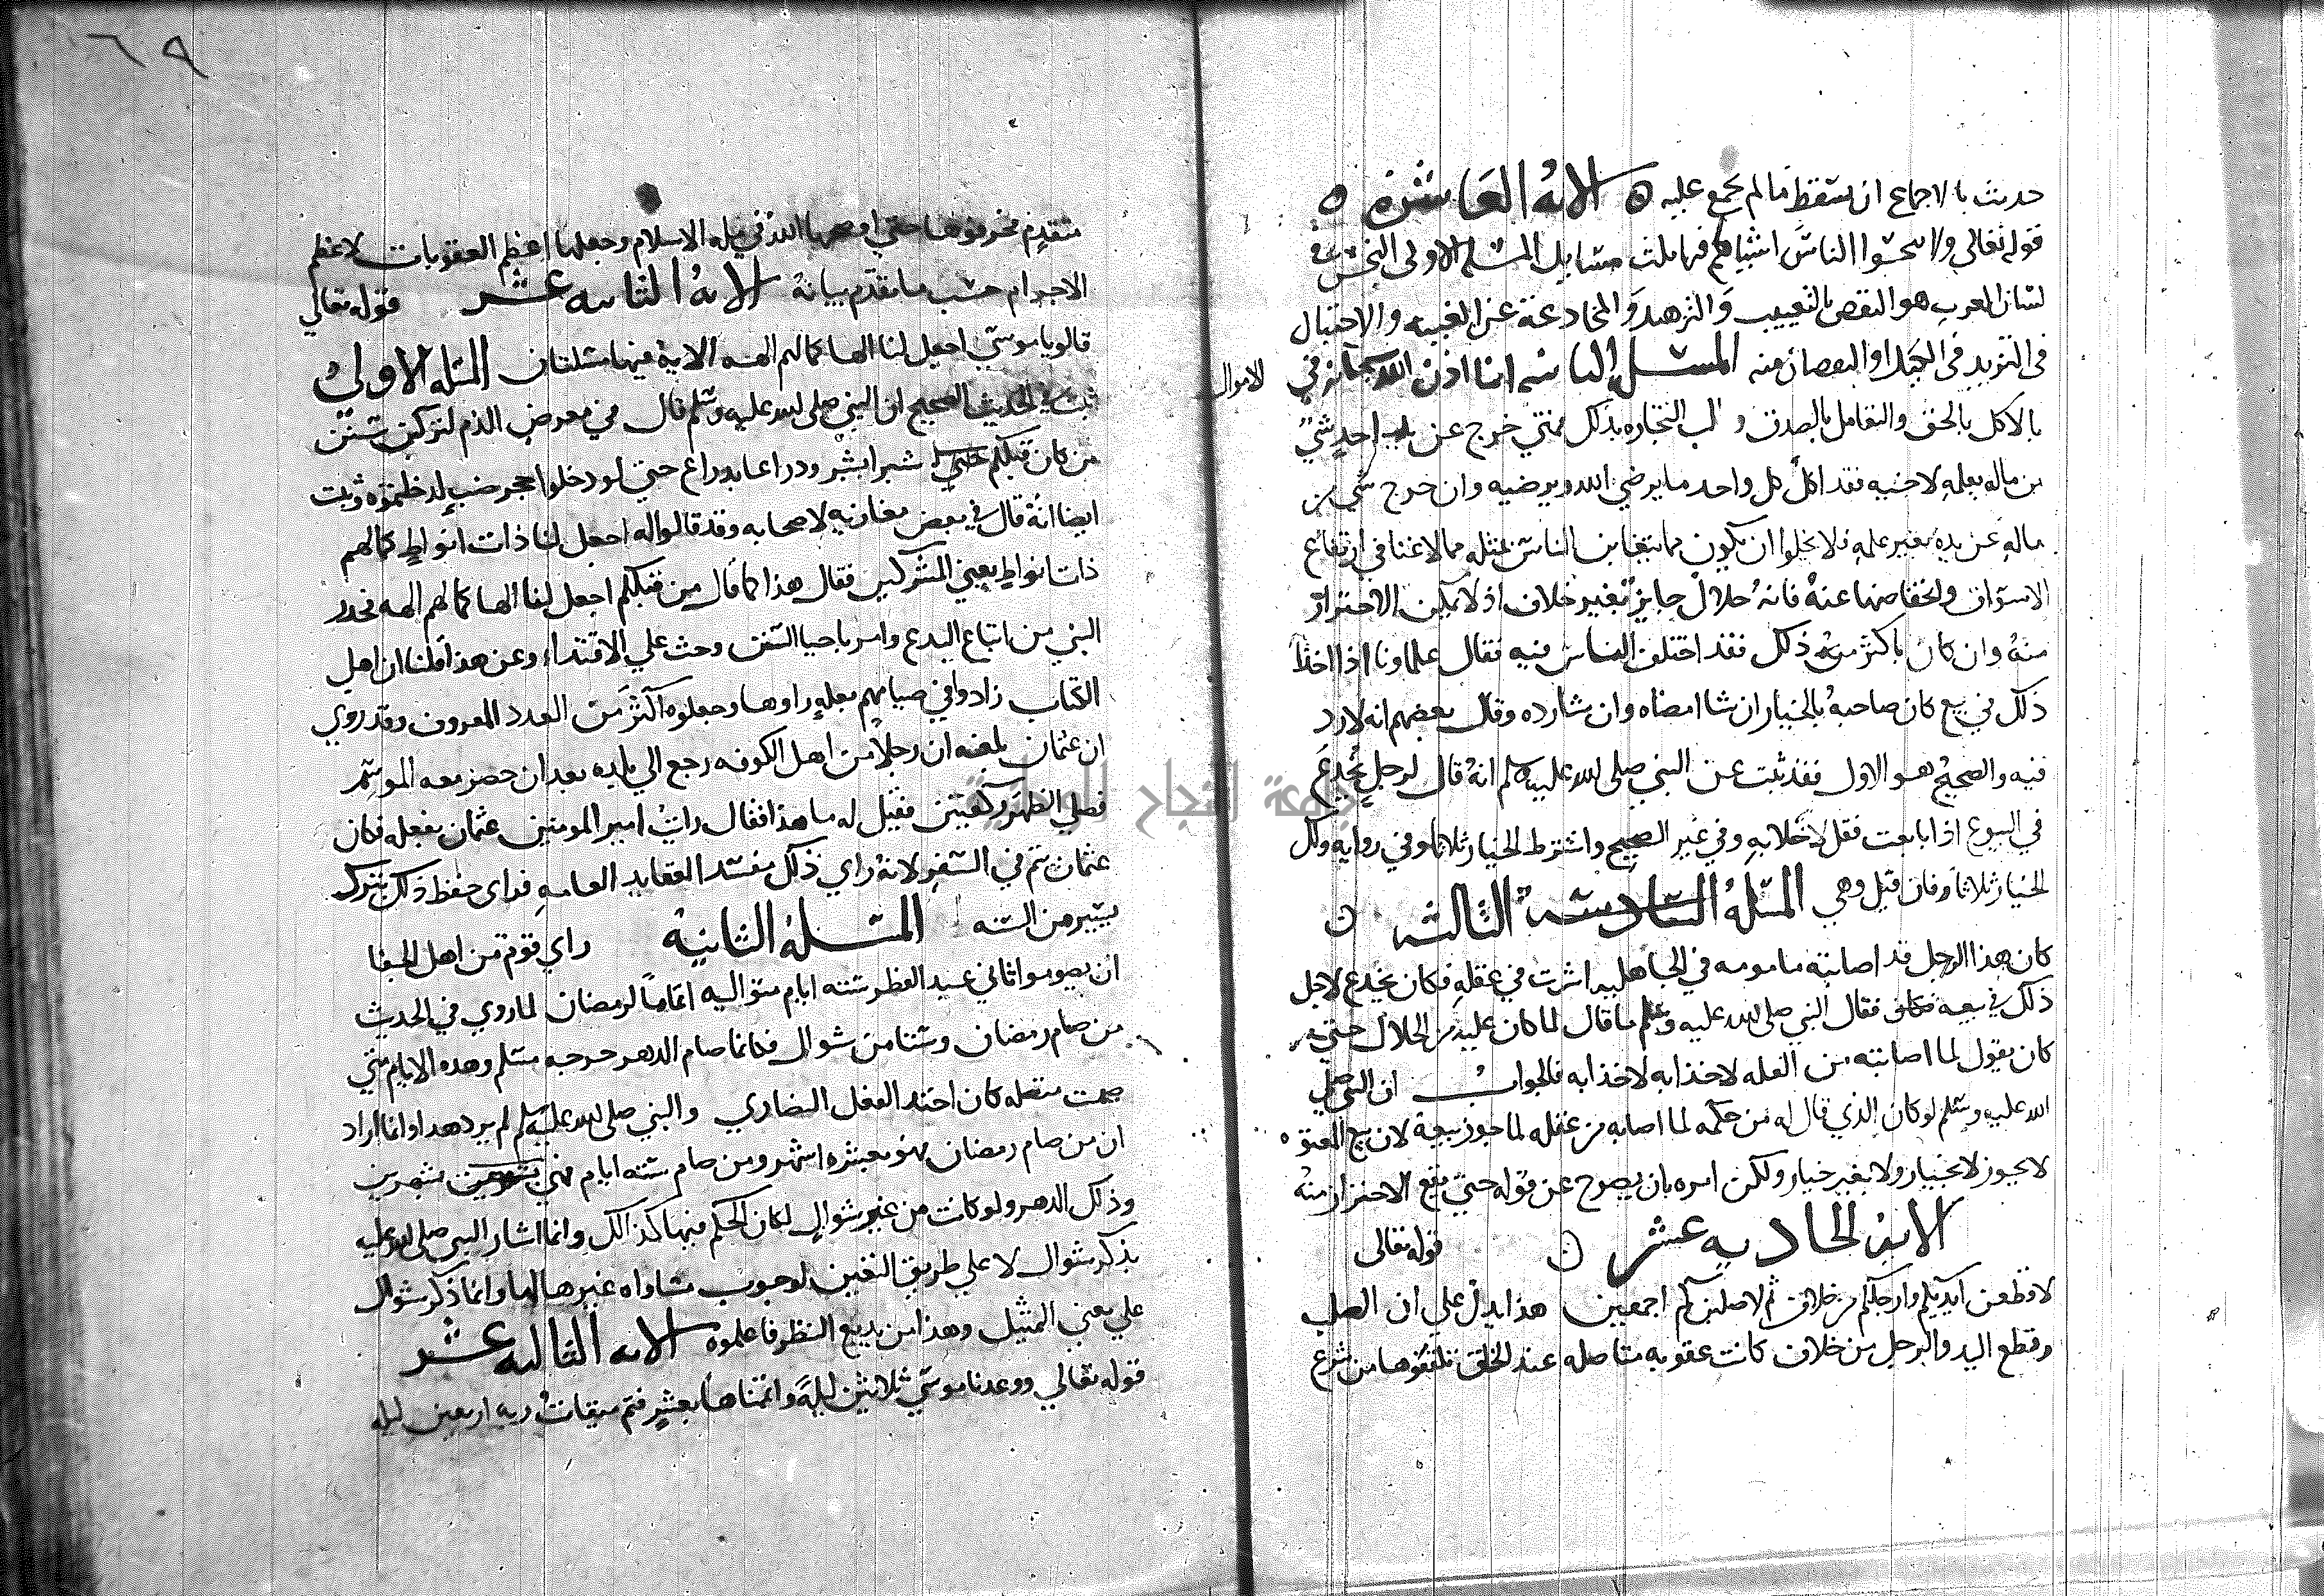 حديث بالاجماع ان يسقط ما لم يجمع عليه ه الايه العاشره ه
قوله تعالى ولا تبخسوا الناس اشياهم فيها ثلث مسايل المسله الاولى البخس في
لسان العرب هو النقص بالتعييب والتزهيد والمخادعة عن القيمه والاحتيال
في التزيد في الكيل او النقصان منه المسله الثانيه انما اذن الله سبحانه في الاموال
بالاكل بالحق والتعامل بالصدق و التجاره بذلك فمتى خرج عن يد احد شي
من ماله بعلمه لاخيه فقد اكل كل واحد ما يرضي الله ويرضيه وان خرج شي من
ماله عن يده بغير علمه فلا يخلوا ان يكون مما يتغابن الناس بمثله مما لا غنا في ارتفاع
الاسواق وانخفاضها عنه فانه حلال جايز بغير خلاف اذ لا يمكن الاحتراز
منه وان كان باكثر من ذلك فقد اختلف الناس فيه فقال علماونا اذا
ذلك في بيع كان صاحبه بالخيار ان شا امضاه وان شا رده وقال بعضهم انه لا رد
فيه والصحيح هو الاول فقد ثبت عن النبي صلى الله عليه وسلم انه قال لرجل يخدع
في البيوع اذا بايعت فقل لا خلابه وفي غير الصحيح واشترط الخيار ثلاثا وفي روايه ولك
الخيار ثلاثا وفان قيل وهي المسله السادسة الثالثه
كان هذا الرجل قد اصابته مامومه في الجاهليه اثرت في عقله فكان يخدع لاجل
ذلك في بيعه فقال النبي صلى الله عليه وسلم ما قال لما كان عليه من الحلال حتى
كان يقول لما اصابته من العله لا خذابه لا خذابه فالجواب ان النبي صلى
الله عليه وسلم لو كان الذي قال له من حكمه لما اصابه من عقله لما جوز بيعه لان بيع المعتوه
لا يجوز لا بخيار ولا بغير خيار ولكن امره بان يصرح عن قوله حتى يقع الاحتراز منه
الايه الحاديه عشر قوله تعالى
لاقطعن ايديكم وارجلكم من خلاف ثم لاصلبنكم اجمعين هذا يدل على ان الصلب
وقطع اليد والرجل من خلاف كانت عقوبه متاصله عند الخلق تلقفوها من شرع
٦٩
متقدم فحرفوها حتى اوضحها الله في مله الاسلام وجعلها اعظم العقوبات لاعظم
الاجرام حسب ما تقدم بيانه الايه الثانيه عشر قوله تعالي
قالو يا موسي اجعل لنا الها كما لهم الهه الاية فيها مسئلتان المسله الاولى
ثبت في الحديث الصحيح ان النبي صلى الله عليه وسلم قال في معرض الذم لتركبن سنن
من كان قبلكم شبرا بشبر ودراعا بدراع حتى لو دخلوا حجر ضب لدخلتموه وثبت
ايضا انه قال في بعض مغازيه لاصحابه وقد قالوا له اجعل لنا ذات انواط كما لهم
ذات انواط يعني المشركين فقال هذا كما قال من قبلكم اجعل لنا الها كما لهم الهه فحذر
النبي من اتباع البدع وامر باحيا السنن وحث علي الاقتداء وعن هذا قلنا ان اهل
الكتاب زادوا في صيامهم بعله راوها وجعلوه اكثر من العدد المعروف وقد روي
ان عثمان بلغه ان رجلا من اهل الكوفه رجع الي بلده بعد ان حضر معه الموسم
فصلي الظهر ركعتين فقيل له ما هذا فقال رايت امير المومنين عثمان يفعله فكان
عثمان يتم في السفر لانه راي ذلك مفسد العقايد العامه فراى حفظ ذلك بترك
يسير من السنه المسله الثانيه راي قوم من اهل الجفا
ان يصوموا ثاني عيد الفطر سته ايام متواليه اتماما لرمضان لما روي في الحديث
من صام رمضان وستا من شوال فكانما صام الدهر خرجه مسلم وهذه الايام متي
صيمت متصله كان اخذ الفعل النصاري والنبي صلى الله عليه وسلم لم يرد هذا وانما اراد
ان من صام رمضان فهو بعشره اشهر ومن صام سته ايام فهي بشهرين
وذلك الدهر ولو كانت من غير شوال لكان الحكم فيها كذالك وانما اشار النبي صلى الله عليه
بذكر شوال لا علي طريق التعيين لوجوب مساواه غيرها لها وانما ذكر شوال
علي معني المثيل وهذا من بديع النظر فاعلموه الايه الثالثه عشر
قوله تعالي ووعدنا موسي ثلاثين ليلة واتممناها بعشر فتم ميقات ربه اربعين ليله
جامعة النجاح الوطنية